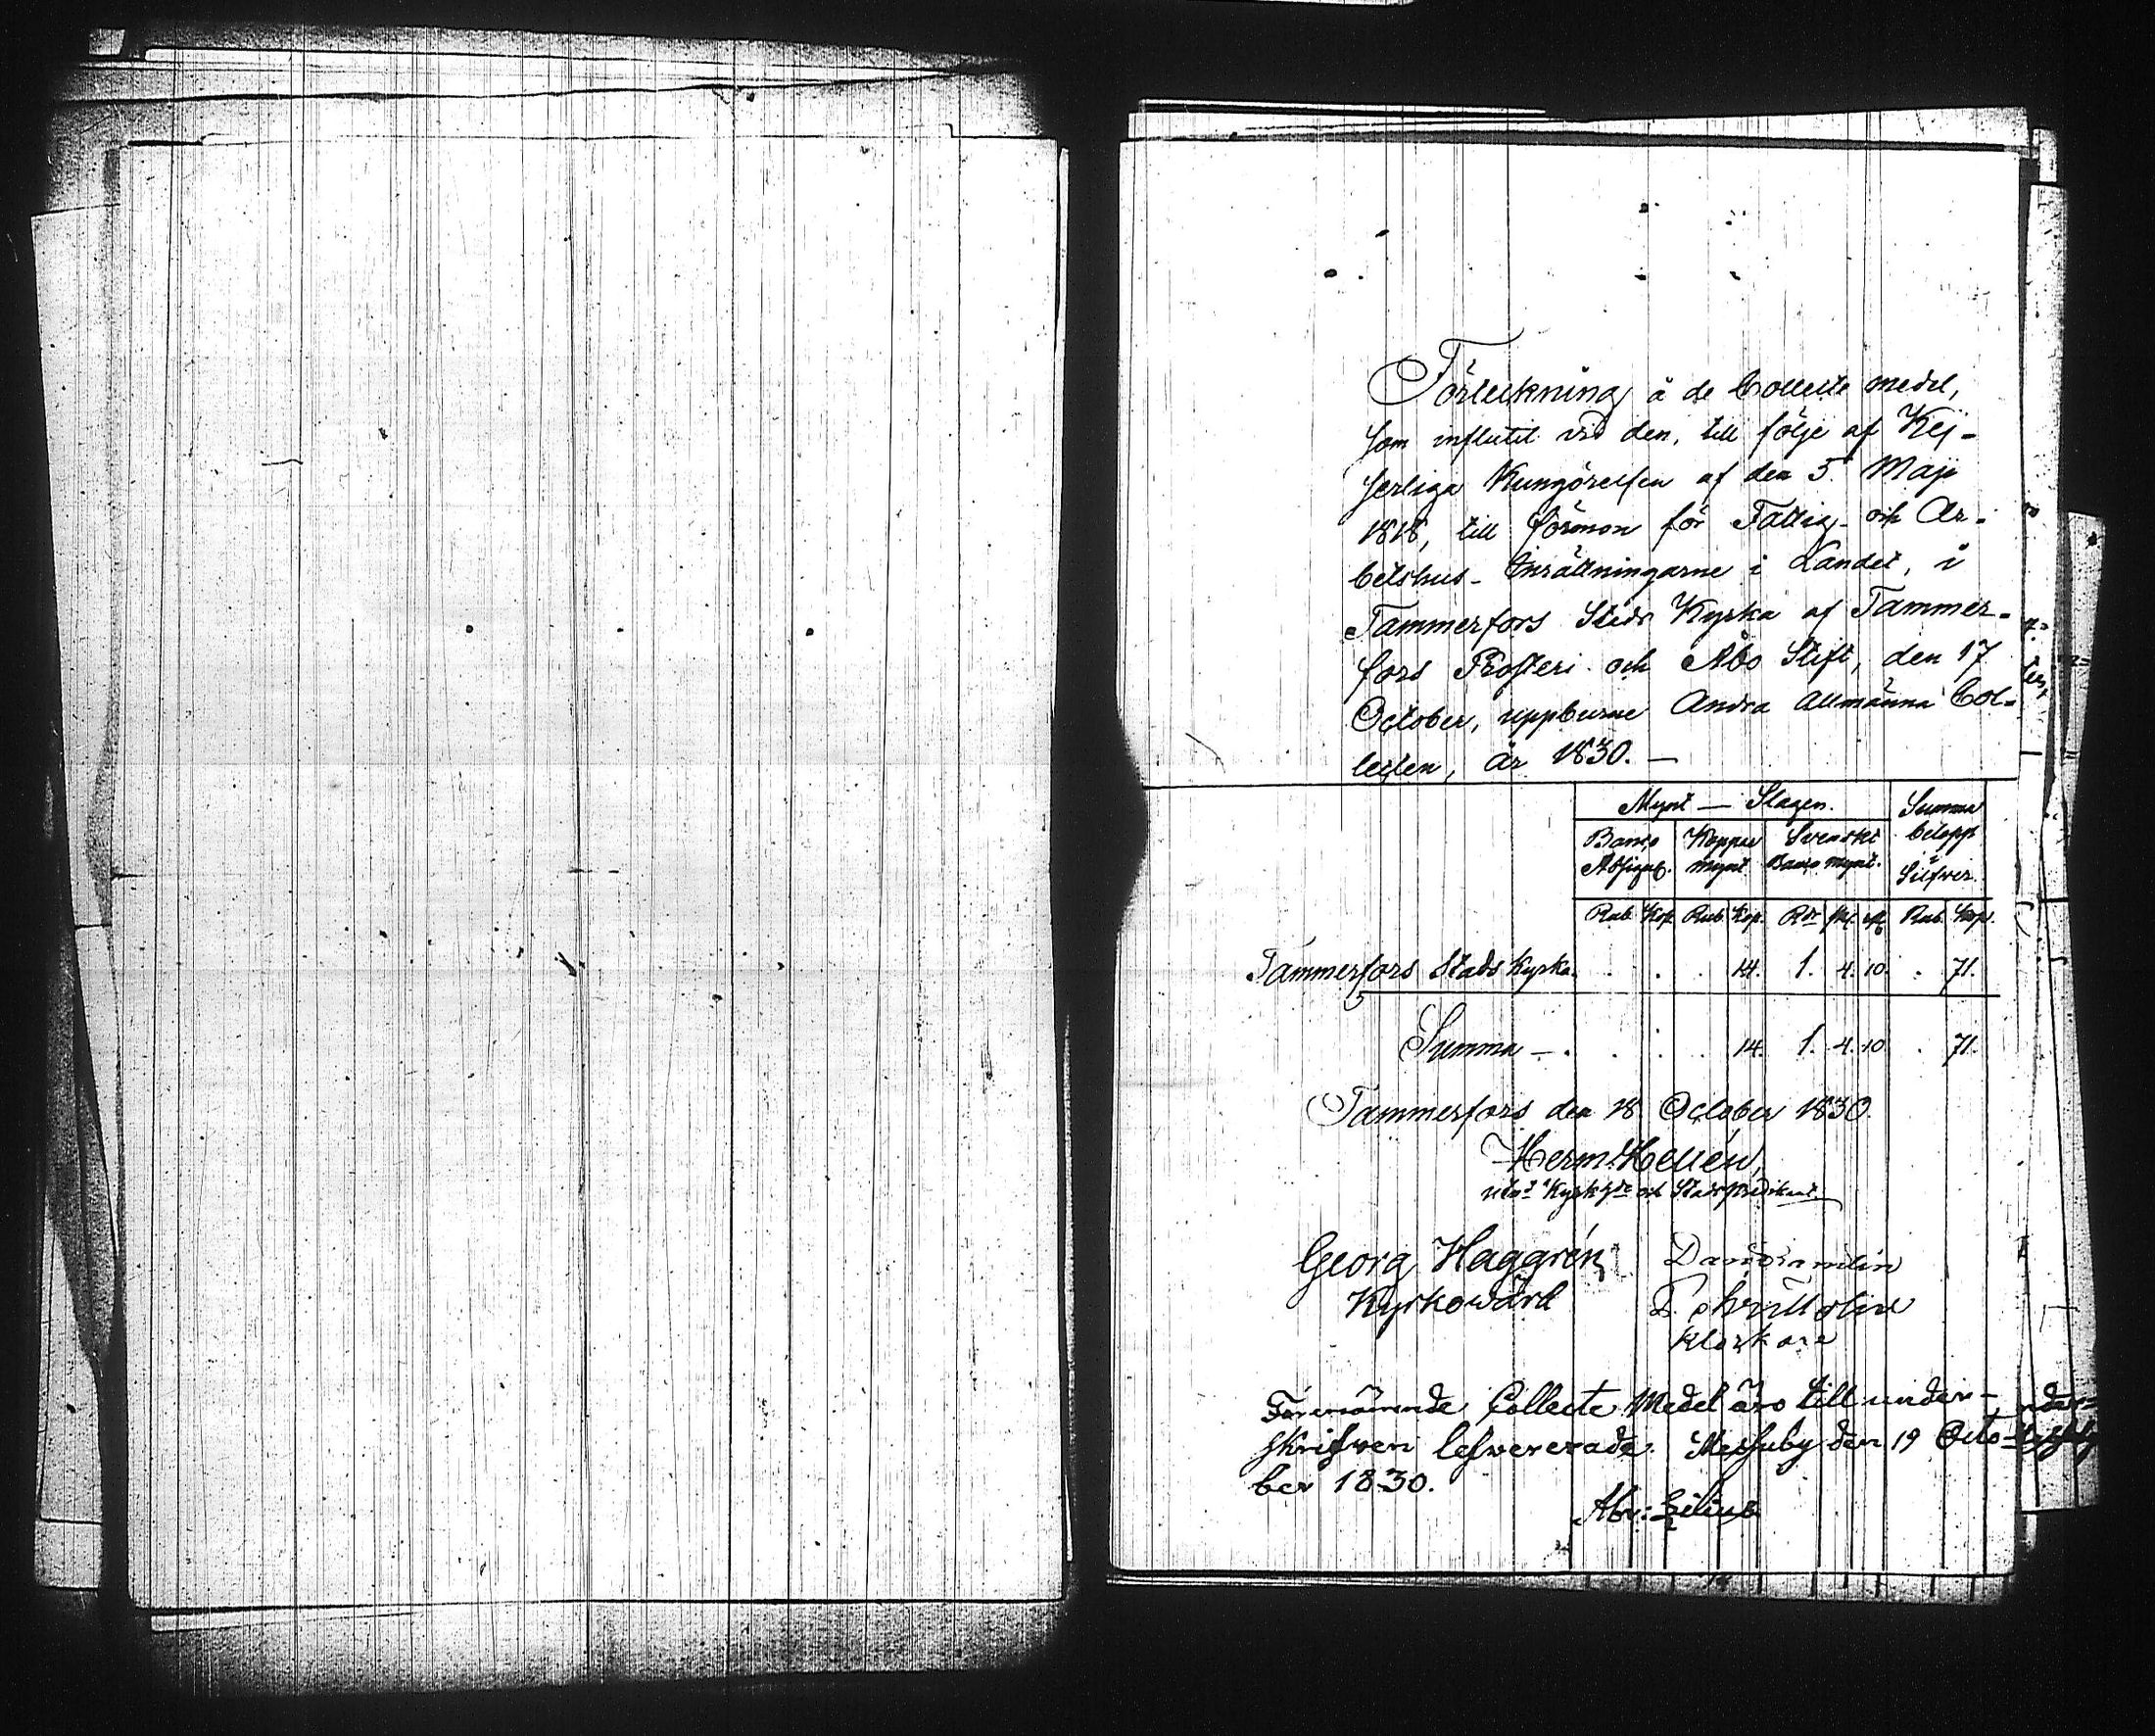 Förteckning å de Collecte medel,
som influtit vid den, till följe af Kej-
serliga Kungörelsen af den 5 Maji
1818, till förmon för Fattig- och Ar-
betshus-Inrättningarne i Landet, i
Tammerfors Stads Kyrka af Tammer-
fors Prosteri och Åbo Stift, den 17
October, uppburne Andra Allmänna Col-
lecten, år 1830. —
Mynt — Slagen. Summa
Banco Koppar Svenskt belopp
Assign. mynt Banco mynt. i
Silfver.
Rub. Kop. Rub. Kop. Rdr sk. rst. Rub. Kop.
Tammerfors Stads Kyrka . . . 14. 1. 4. 10. . 71.
Summa — . . . . 14. 1. 4. 10 . 71.
Tammerfors den 18 October 1830.
Herm. Hellén,
och Stadspredikant
Georg Haggrén
Kyrkowärd
Klockare
Förenämnde Collecte Medel äro till under-
skrifven lefvererade. Messuby den 19 Octo-
ber 1830.
Abr: Lilius